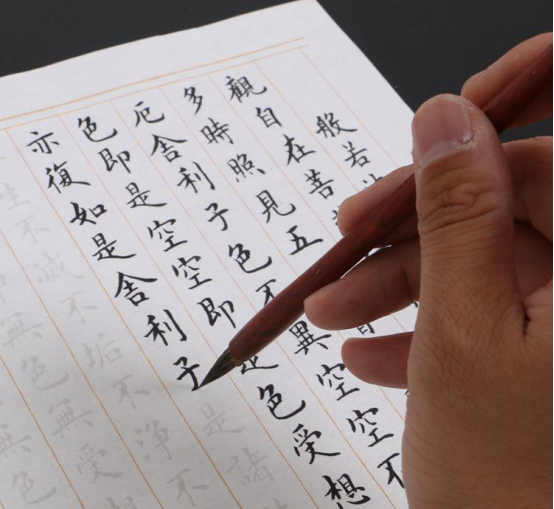 般若
觀自在菩
多時照見五
厄舍利子色不異空空不
色即是空空即是色受想
亦復如是舍利子是諸
生不滅不垢不淨不
中無色無受想
無色